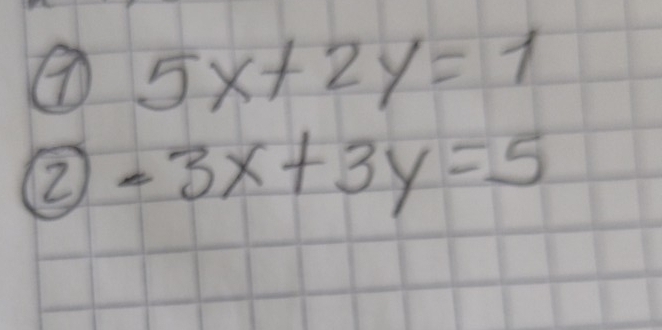 ① 5x+2y=1
② -3x+3y=5